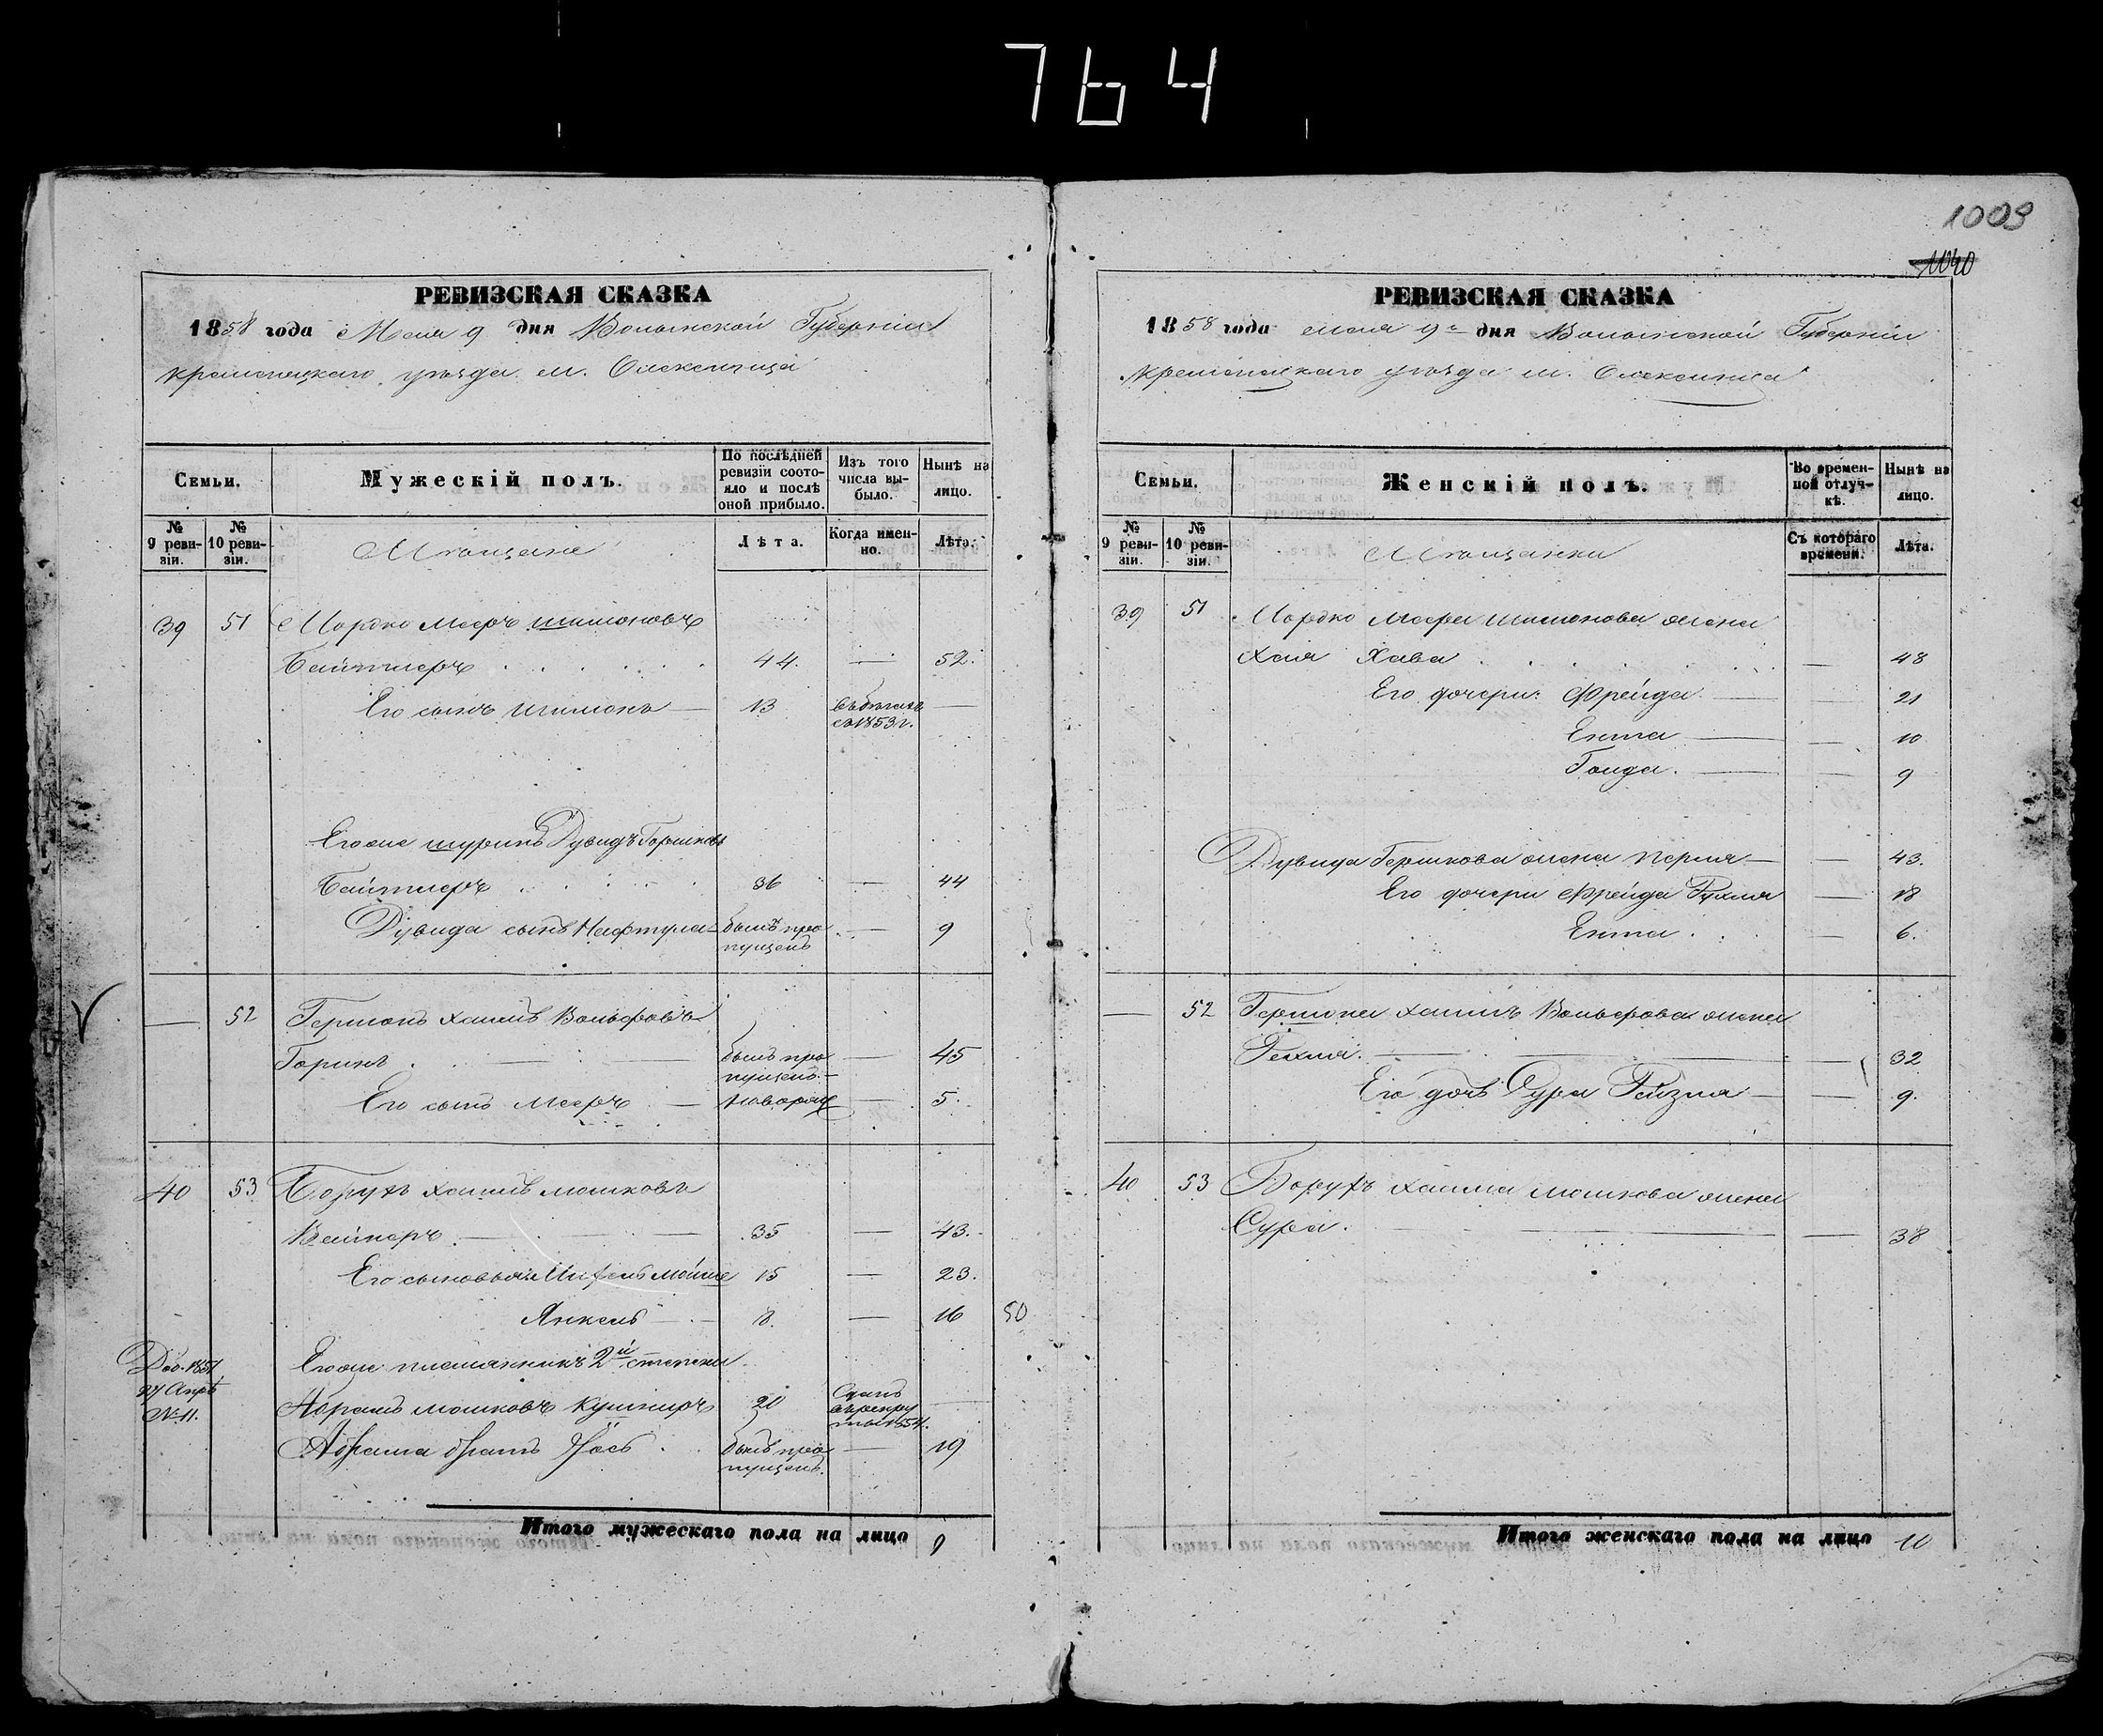 764
1009
1040
РЕВИЗСКАЯ СКАЗКА
1858 года Мая 9 дня Волынской Губерніи
Кременецкаго уѣзда м. Олексинца
Семьи.
Мужескій полъ.
По послѣдней ревизіи состояло и послѣ оной прибыло.
Изъ того числа выбыло.
Нынѣ на лицо.
№ 9 ревизіи.
№ 10 ревизіи.
Мѣщане
Лѣта.
Когда именно.
Лѣта.
39 51 Мордко Мееръ Шимоновъ
Байтлеръ 44. — 52.
Его сынъ Шимонъ — 13 въ бѣгахъ —
съ 1853 г.
Его же шуринъ Дувидъ Гершковъ
Байтлеръ 36 — 44
Дувида сынъ Нафтула былъ про — 9
пущенъ
— 52 Гершонъ Хаимъ Вольфовъ
Горинъ былъ про — 45
пущенъ.
Его сынъ Мееръ — новорож — 5.
40 53 Борухъ Хаимъ Мошковъ
Вайнеръ. 35 — 43.
Его сыновья: Мойше 15 — 23.
Янкель 8. — 16 50
Его же племянникъ 2й степени
Доб. 1851
27 Апрѣ
№ 11.
Абрамъ Мошковъ Кушниръ 20 Сданъ —
въ рекру
ты 1854.
Абрама братъ Іосъ былъ про — 19
пущенъ.
Итого мужескаго пола на лицо 9
РЕВИЗСКАЯ СКАЗКА
1858 года мая 9 дня Волынской Губерніи
Кременецкаго уѣзда м. Олексинца
Семьи.
Женскій полъ.
Во временной отлучкѣ.
Нынѣ на лицо.
№ 9 ревизіи.
№ 10 ревизіи.
Мѣщанки
Съ котораго времени.
Лѣта.
39 51 Мордко Меера Шимонова жена
Хая Хава — 48
Его дочери: Фрейда — 21
Ента — 10
Голда. — 9
Дувида Гершкова жена Перля — 43.
Его дочери Фрейда Рухля — 18
Ента. — 6.
— 52 Гершона Хаимъ Вольфова жена
Рахля. — 32
Его дочь Сура Рейзля — 9.
40 53 Борухъ Хаима Мошкова жена
Сура. — 38
Итого женскаго пола на лицо 10